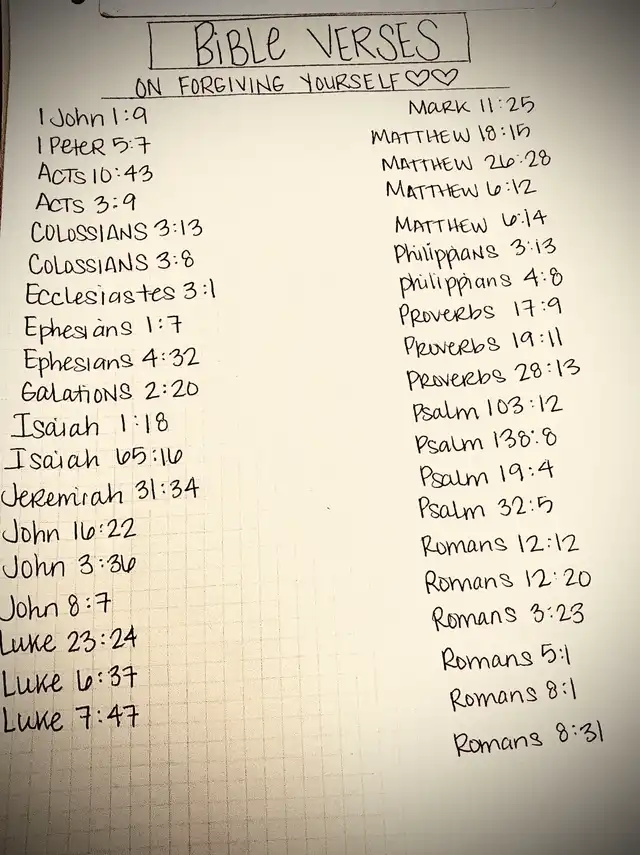 BiBLe VERSES
ON FORGIVING YOURSELF♡♡
1 John 1:9
1 PeteR 5:7
Acts 10:43
Acts 3:9
COLOSSIANS 3:13
COLOSSIANS 3:8
Ecclesiastes 3:1
Ephesians 1:7
Ephesians 4:32
GALATIONS 2:20
Isaiah 1:18
Isaiah 65:16
Jeremiah 31:34
John 16:22
John 3:36
John 8:7
Luke 23:24
Luke 6:37
Luke 7:47
MARK 11:25
MATTHEW 18:15
MATTHEW 26:28
MATTHEW 6:12
MATTHEW 6:14
Philippians 3:13
philippians 4:8
Proverbs 17:9
Proverbs 19:11
Proverbs 28:13
Psalm 103:12
Psalm 138:8
Psalm 19:4
Psalm 32:5
Romans 12:12
Romans 12:20
Romans 3:23
Romans 5:1
Romans 8:1
Romans 8:31